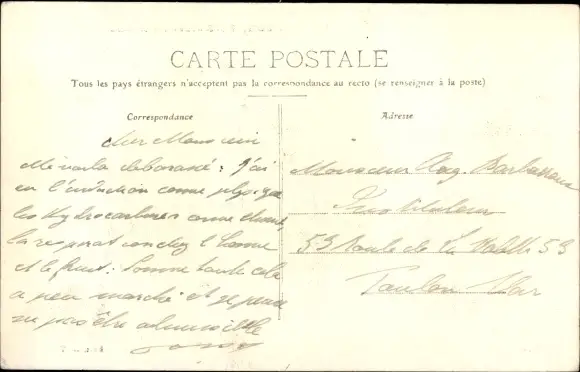 CARTE POSTALE
Tous les pays étrangers n'acceptent pas la correspondance au recto (se renseigner à la poste)
Correspondance
Cher Monsieur
Me voila débarassé : j'ai
eu l'induction comme physique
les hydrocarbures comme chimie,
la respiration chez l'homme
et le fruit. Somme toute cela
a peu marché et je pense
ne pas être admissible
Adresse
Monsieur Aug. Barbaroux
Instituteur
53 Route de La Valette 53
Toulon Var